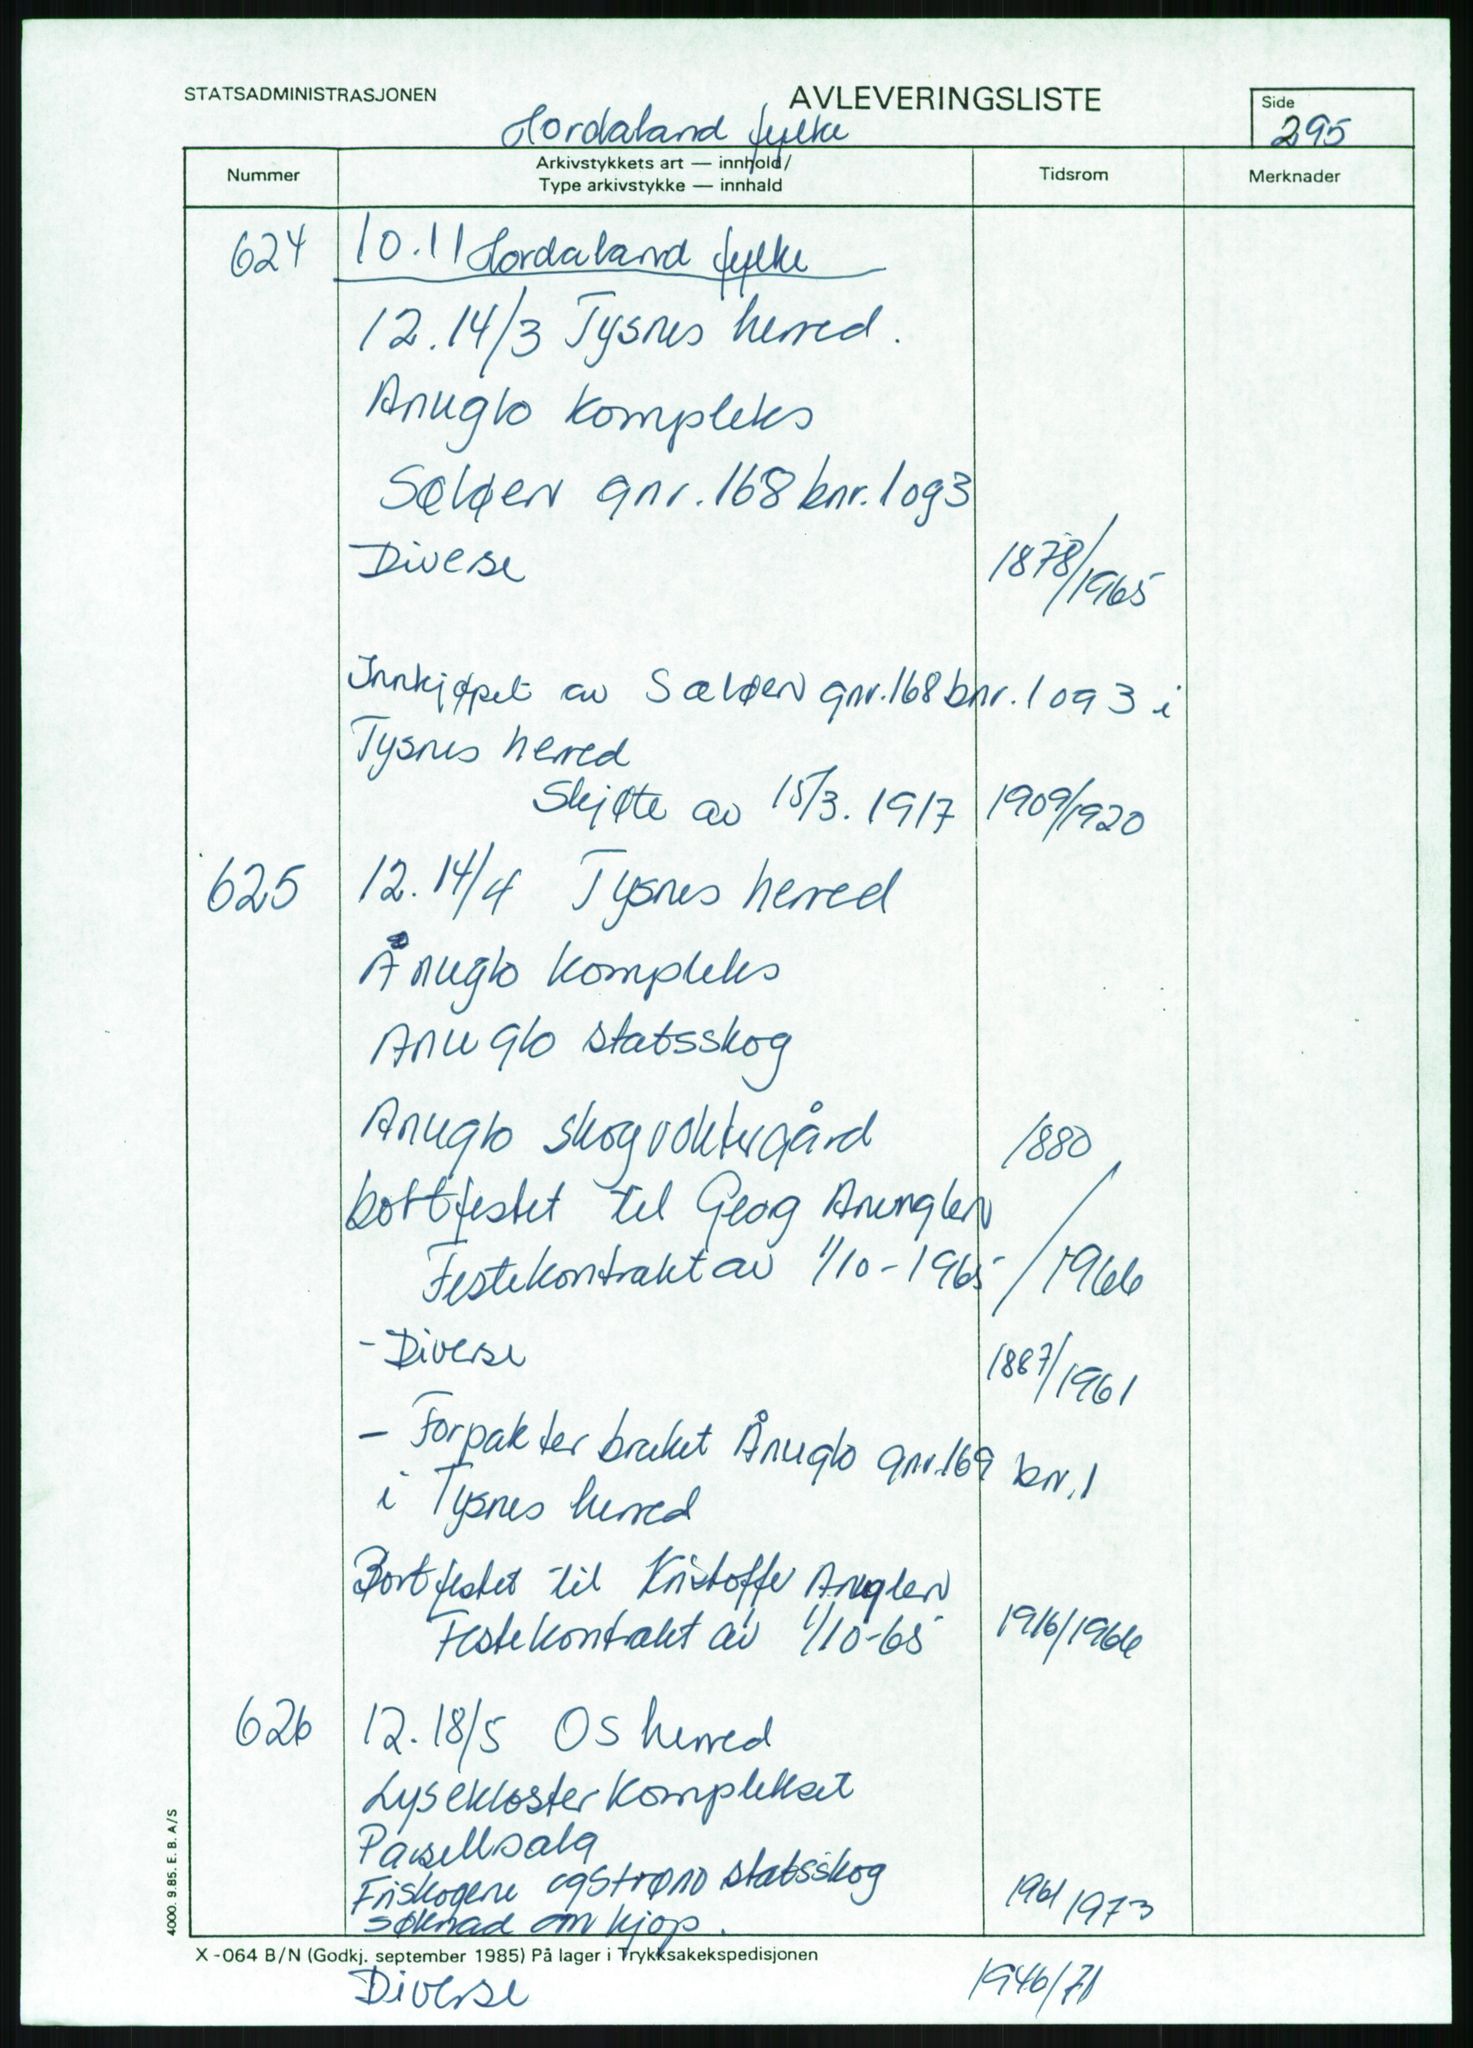 STATSADMINISTRASJONEN
AVLEVERINGSLISTE
Side
295
Hordaland fylke
Nummer
Arkivstykkets art — innhold/
Type arkivstykke — innhald
Tidsrom
Merknader
624 10.11 Hordaland fylke
12.14/3 Tysnes herred.
Anuglo kompleks
Sæløen gnr. 168 bnr. 1 og 3
Diverse 1878/1965
Innkjøpet av Sæløen gnr. 168 bnr. 1 og 3 i
Tysnes herred
Skjøte av 15/3. 1917 1909/1920
625 12.14/4 Tysnes herred
Ånuglo kompleks
Anuglo statsskog
Anuglo skogvoktergård 1880
bortfestet til Georg Anunglen
Festekontrakt av 1/10-1965 /1966
- Diverse 1887/1961
- Forpakterbruket Ånuglo gnr. 169 bnr. 1
i Tysnes herred
Bortfestet til Kristoffer Anuglen
Festekontrakt av 1/10-65 1916/1966
626 12.18/5 Os herred
Lysekloster komplekset
Parsellsalg
Friskogene og Strønø statsskog 1961/1973
søknad om kjøp.
4000. 9.85. E. B. A/S
X-064 B/N (Godkj. september 1985) På lager i Trykksakekspedisjonen
Diverse 1946/71